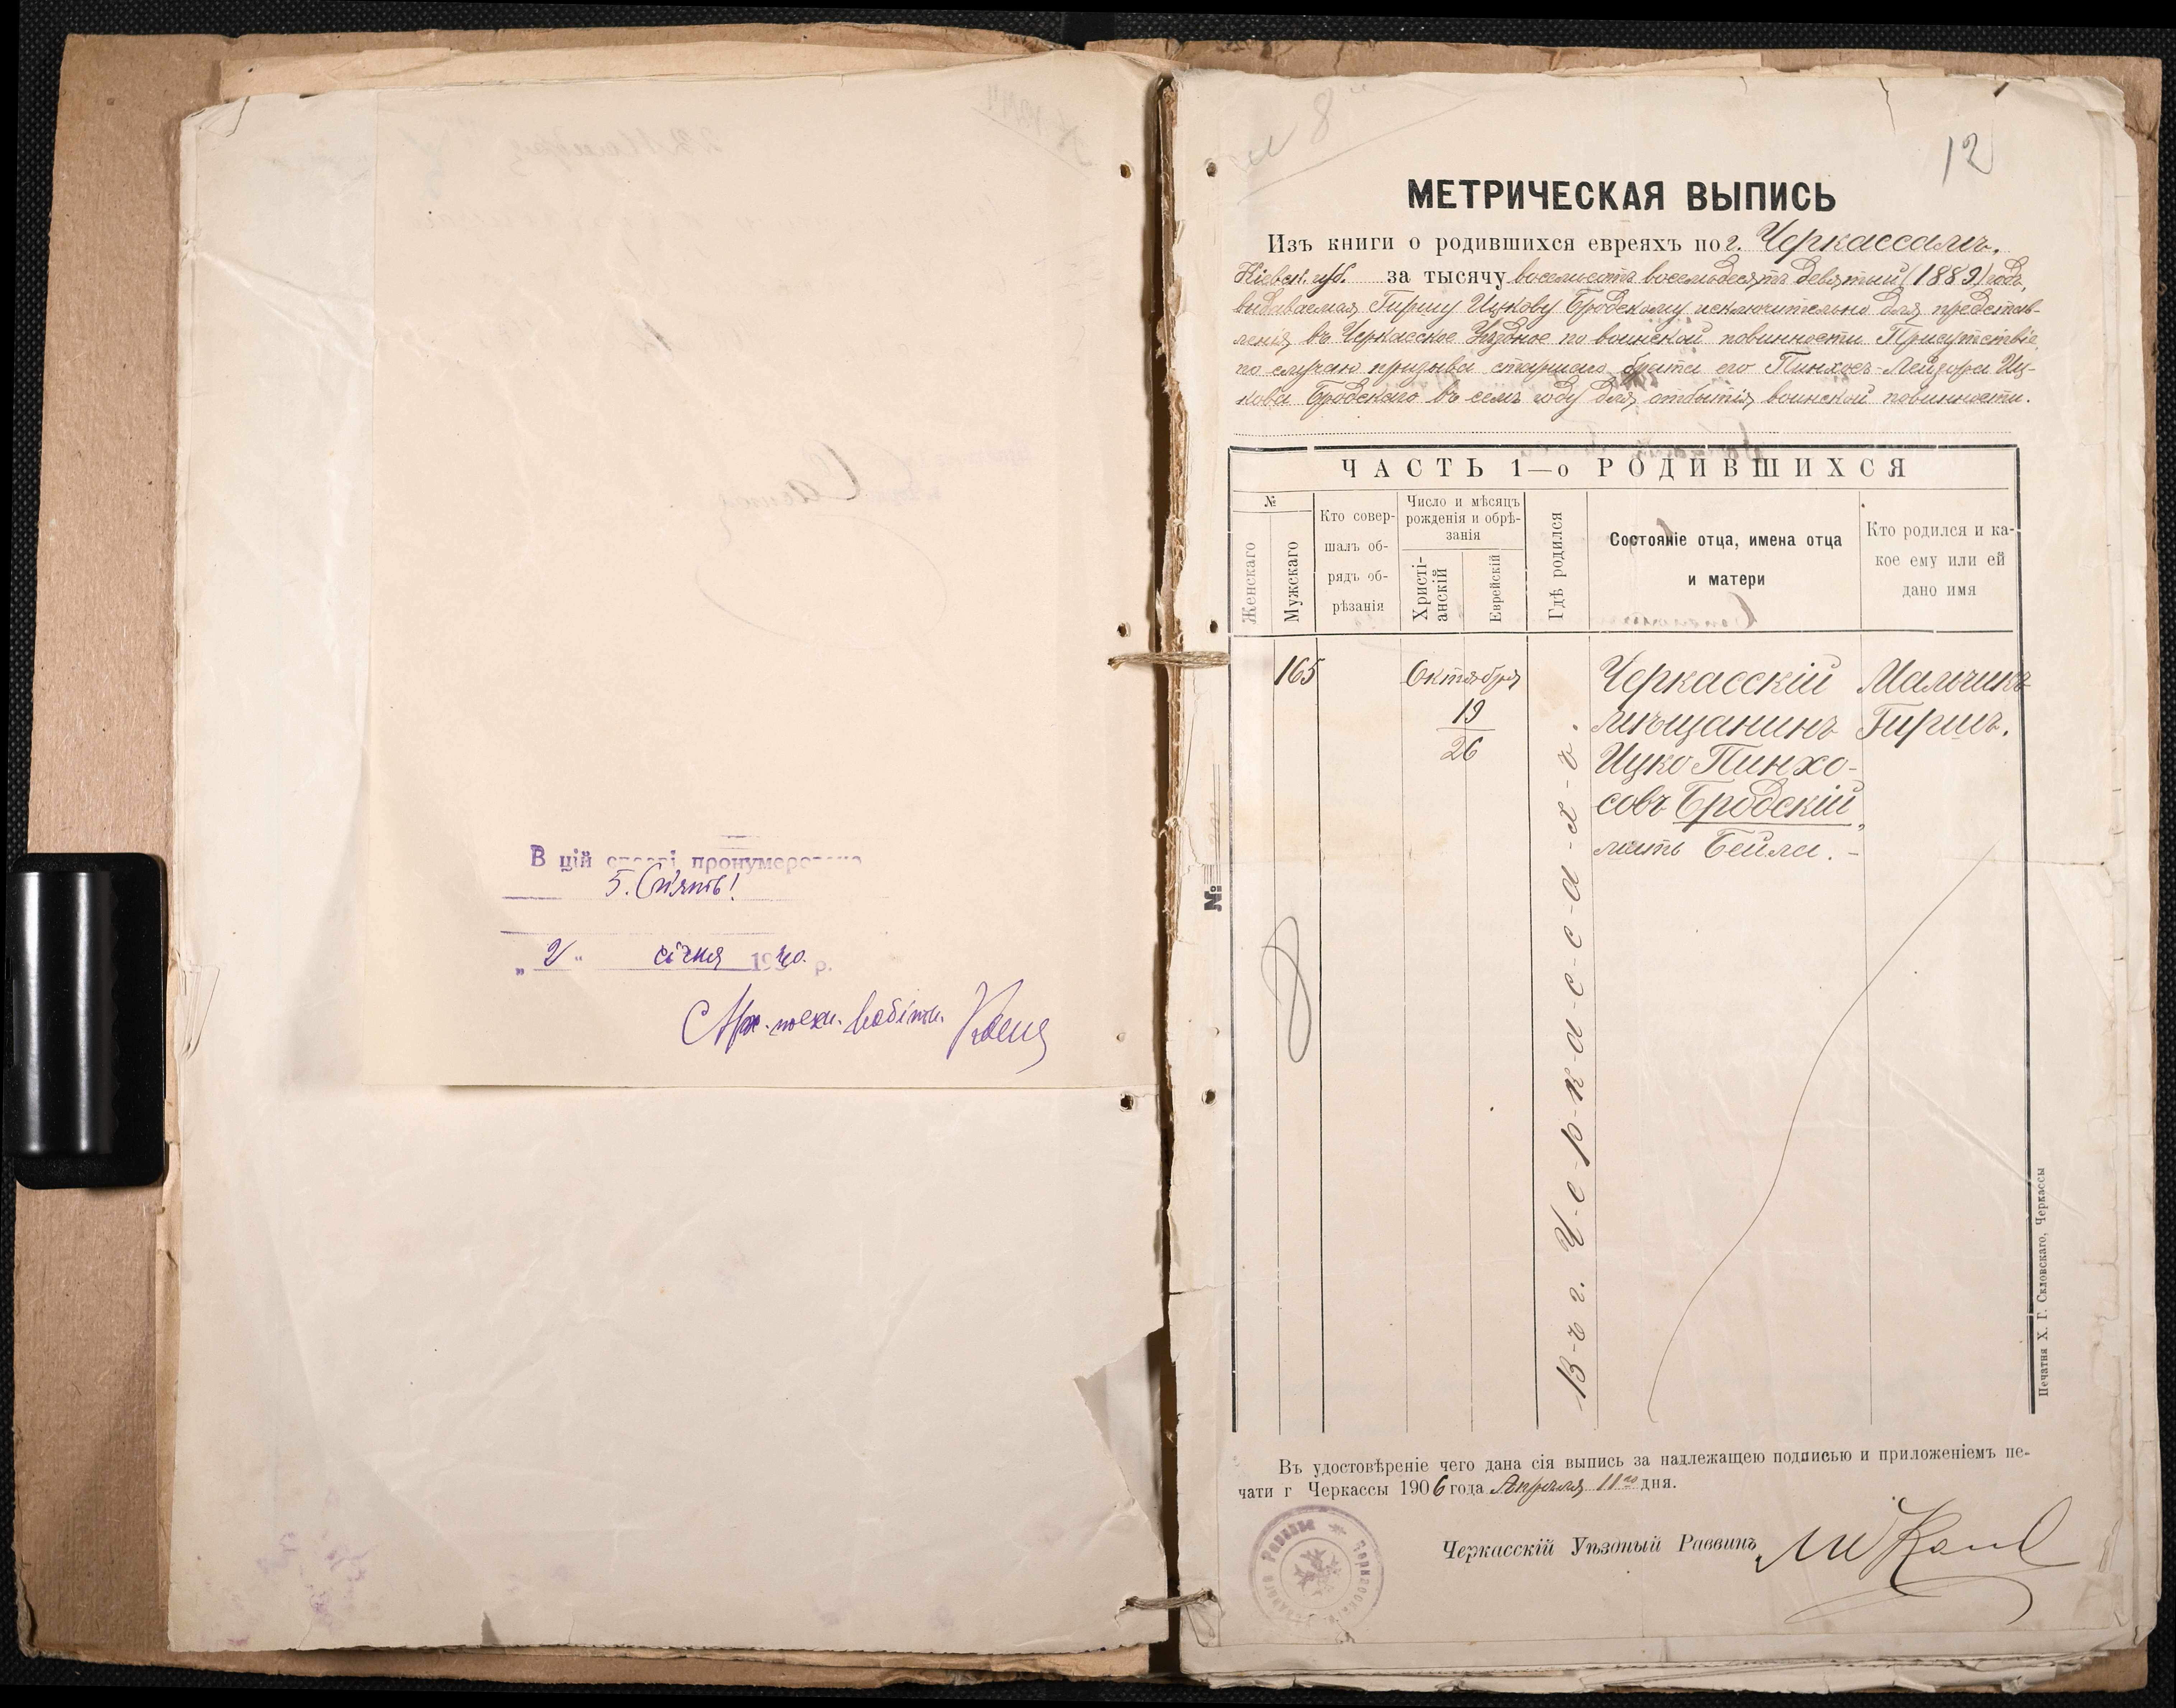 В цій справі пронумеровано
5. (п'ять!
„ 2 " січня 1940. р.
Арх. техн. Робітн.
№ 8
12
МЕТРИЧЕСКАЯ ВЫПИСЬ
Изъ книги о родившихся евреяхъ по г. Черкассамъ.
Кіевск. губ. за тысячу восемьсотъ восемьдесятъ девятый (1889) годъ,
выдаваемая Гиршу Ицкову Бродскому исключительно для представ-
ленія въ Черкасское Уѣздное по воинской повинности Присутствіе,
по случаю призыва старшаго брата его Пинхосъ-Лейзора Иц-
кова Бродскаго въ семъ году для отбытія воинской повинности.
ЧАСТЬ 1—о РОДИВШИХСЯ
№
Женскаго
Мужскаго
Кто совер-
шалъ об-
рядъ об-
рѣзанія
Число и мѣсяцъ
рожденія и обрѣ-
занія
Христі-
анскій
Еврейскій
Гдѣ родился
Состояніе отца, имена отца
и матери
Кто родился и ка-
кое ему или ей
дано имя
165
Октября
19
26
В-ъ г. Ч-е-р-к-а-с-с-а-х-ъ.
Черкасскій
мѣщанинъ
Ицко Пинхо-
совъ Бродскій,
мать Бейла. -
Мальчикъ
Гиршъ.
№
Печатня Х. Г. Скловскаго, Черкассы
Въ удостовѣреніе чего дана сія выпись за надлежащею подписью и приложеніемъ пе-
чати г Черкассы 1906 года Апрѣля 11го дня.
Черкасскій Уѣздный Раввинъ